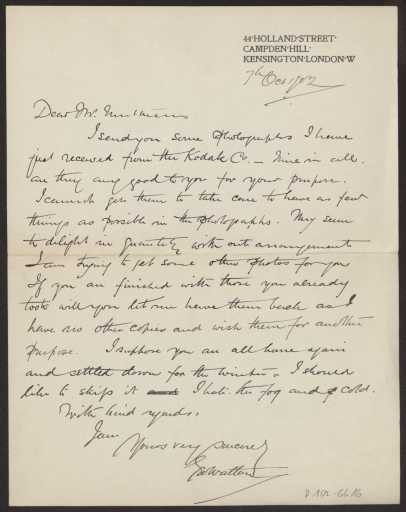 44·HOLLAND·STREET·
CAMPDEN·HILL·
KENSINGTON·LONDON·W
7th Oct 1902
Dear Mr.
I send you some Photographs I have
just received from the Kodak Co. — Nine in all.
are they any good to you for your purpose.
I cannot get them to take care to have as few
things as posible in the Photographs. They seem
to delight in quantity with out arrangement
I am trying to get some other Photos for you
If you are finished with those you already
took will you let me have them back as I
have no other copies and wish them for another
purpose. I suppose you are all home again
and settled down for the winter. I should
like to skip it I hate the fog and cold.
With kind regards.
I am
Yours very sincerely
EAWalton